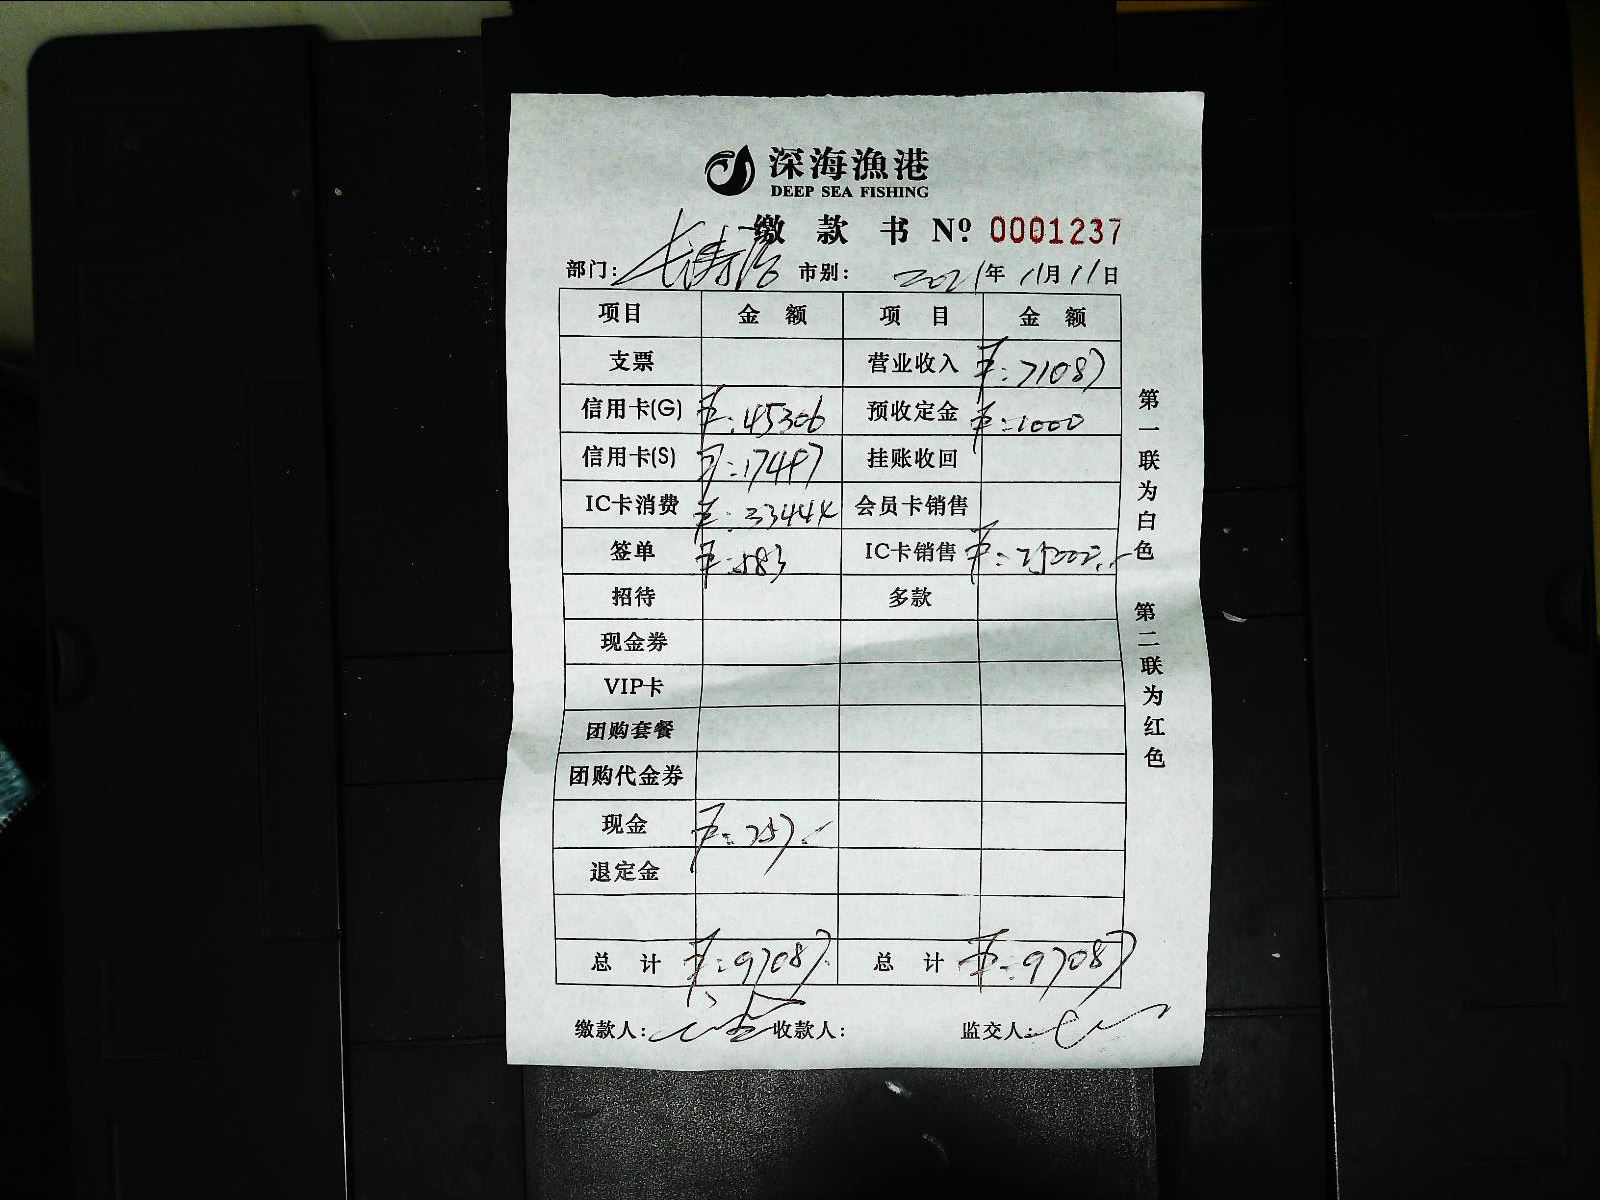 深海漁港
DEEP SEA FISHING
缴 款 书 Nº 0001237
部门: 长寿路 市别: 2021年 11月 11日
项目 金 额 项 目 金 额
支票 营业收入 ￥:71087
信用卡(G) ￥:45306 预收定金 ￥:1000
信用卡(S) ￥:17497 挂账收回
IC卡消费 ￥:33444 会员卡销售
签单 ￥:583 IC卡销售 ￥:25000.-
招待 多款
现金券
VIP卡
团购套餐
团购代金券
现金 ￥:257.-
退定金
总 计 ￥:97087. 总 计 ￥:97087
缴款人: 收款人: 监交人:
第一联为白色 第二联为红色